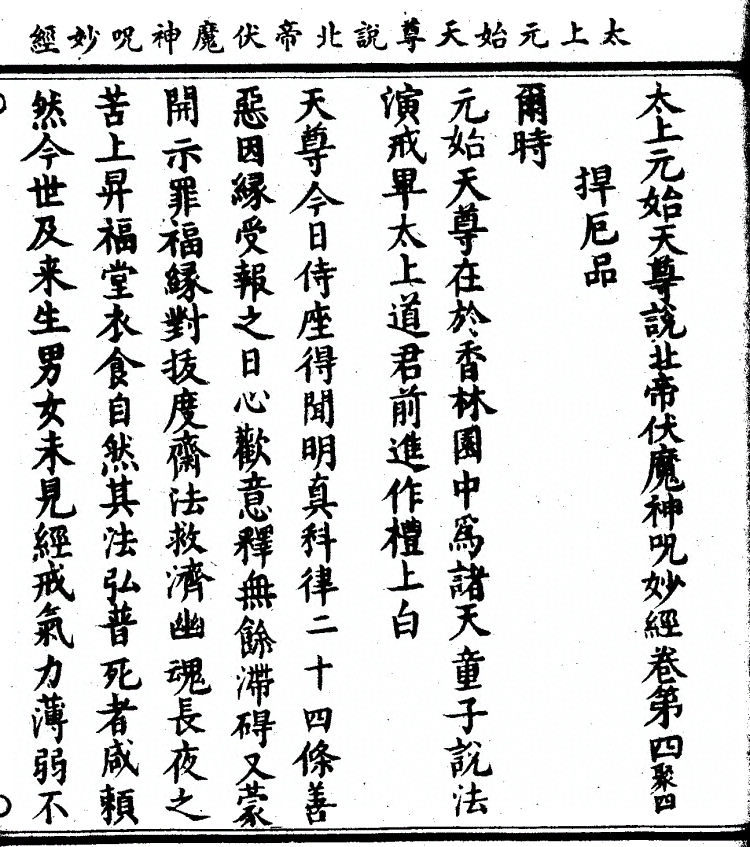 太上元始天尊說北帝伏魔神呪妙經
太上元始天尊說北帝伏魔神呪妙經卷第四聚四
捍厄品
爾時
元始天尊在於香林園中爲諸天童子說法
演戒畢太上道君前進作禮上白
天尊今日侍座得聞明真科律二十四條善
惡因緣受報之日心歡意釋無餘滯碍又蒙
開示罪福緣對拔度齋法救濟幽魂長夜之
苦上昇福堂衣食自然其法弘普死者咸賴
然今世及来生男女未見經戒氣力薄弱不